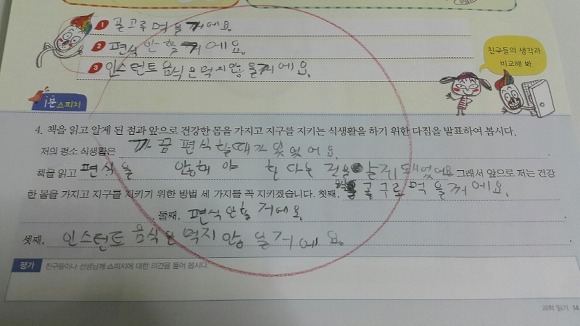 1 골고루 먹을 거에요.
2 편식 안 할 거에요.
3 인스턴트 음식은 먹지 않을 거에요.
친구들의 생각과
비교해 봐
1분 스피치
4. 책을 읽고 알게 된 점과 앞으로 건강한 몸을 가지고 지구를 지키는 식생활을 하기 위한 다짐을 발표하여 봅시다.
저의 평소 식생활은 가끔 편식할때가 있었어요.
책을 읽고 편식을 안해야 한다는 것을 알게 돼었어요 그래서 앞으로 저는 건강
한 몸을 가지고 지구를 지키기 위한 방법 세 가지를 꼭 지키겠습니다. 첫째, 골구루 먹을거에요.
둘째, 편식안할 거에요.
셋째, 인스턴트 음식은 먹지 않을 거에요.
평가 친구들이나 선생님께 스피치에 대한 의견을 들어 봅시다.
과학 읽기